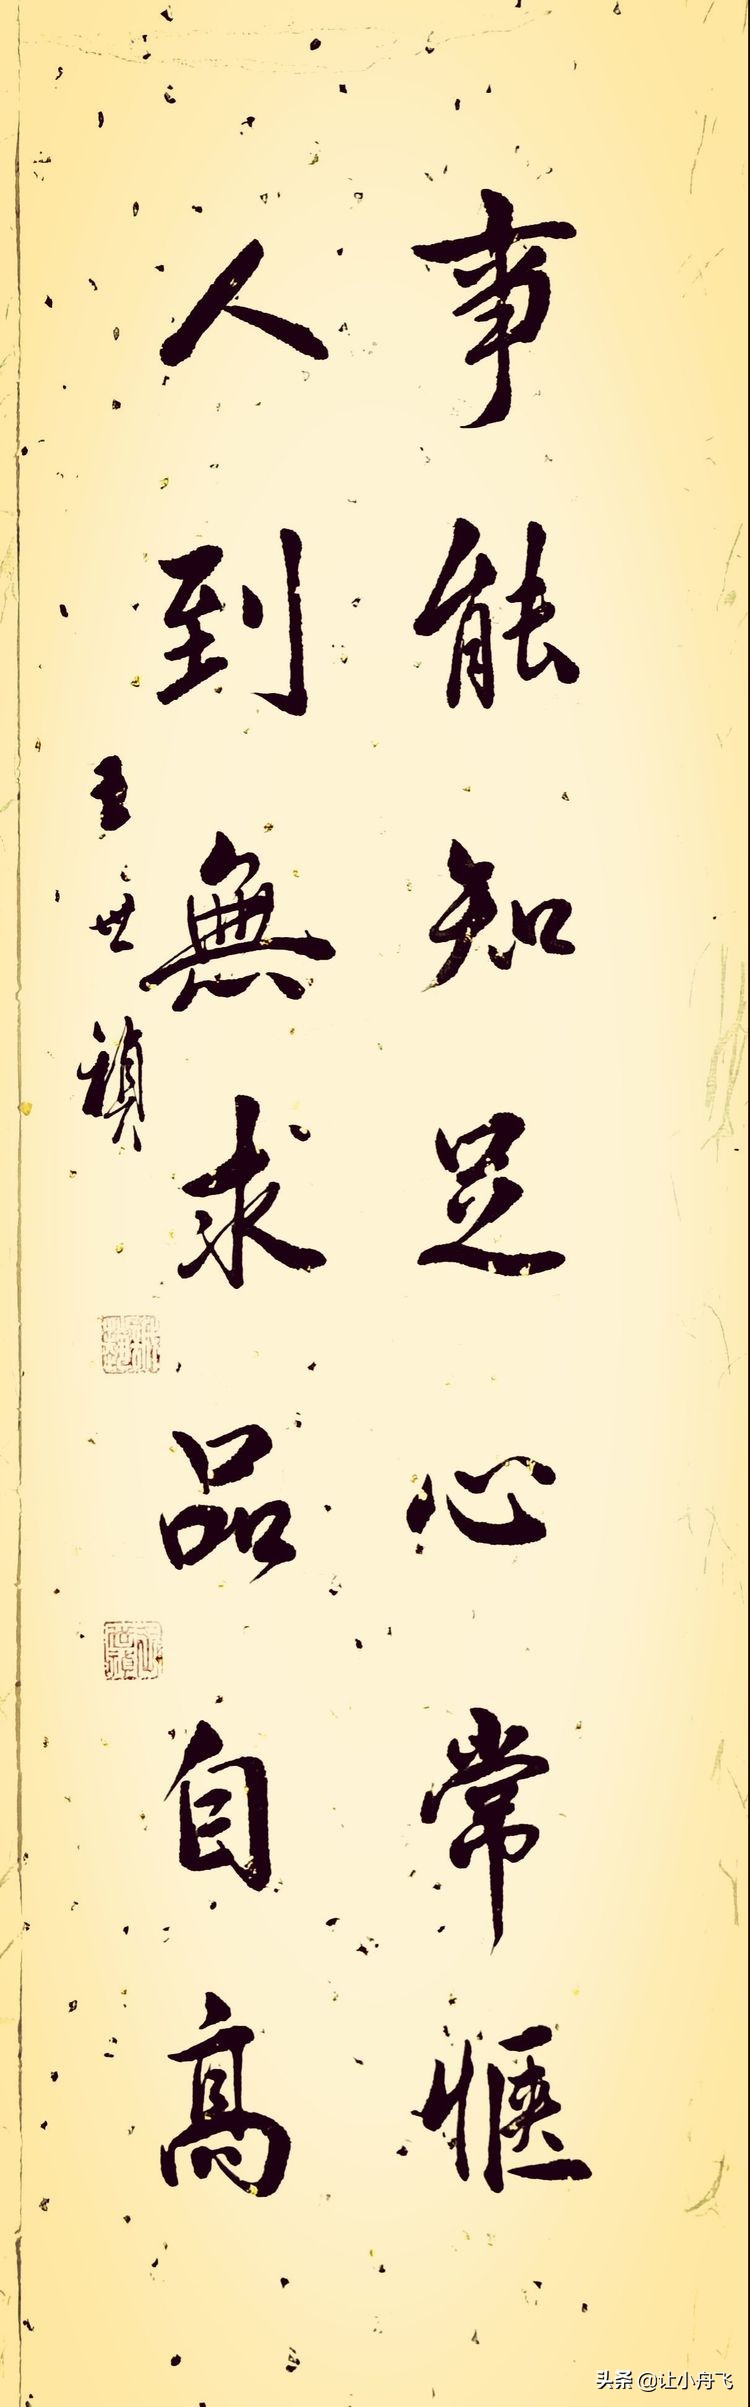 事能知足心常惬
人到無求品自高
王世禎
头条 @让小舟飞